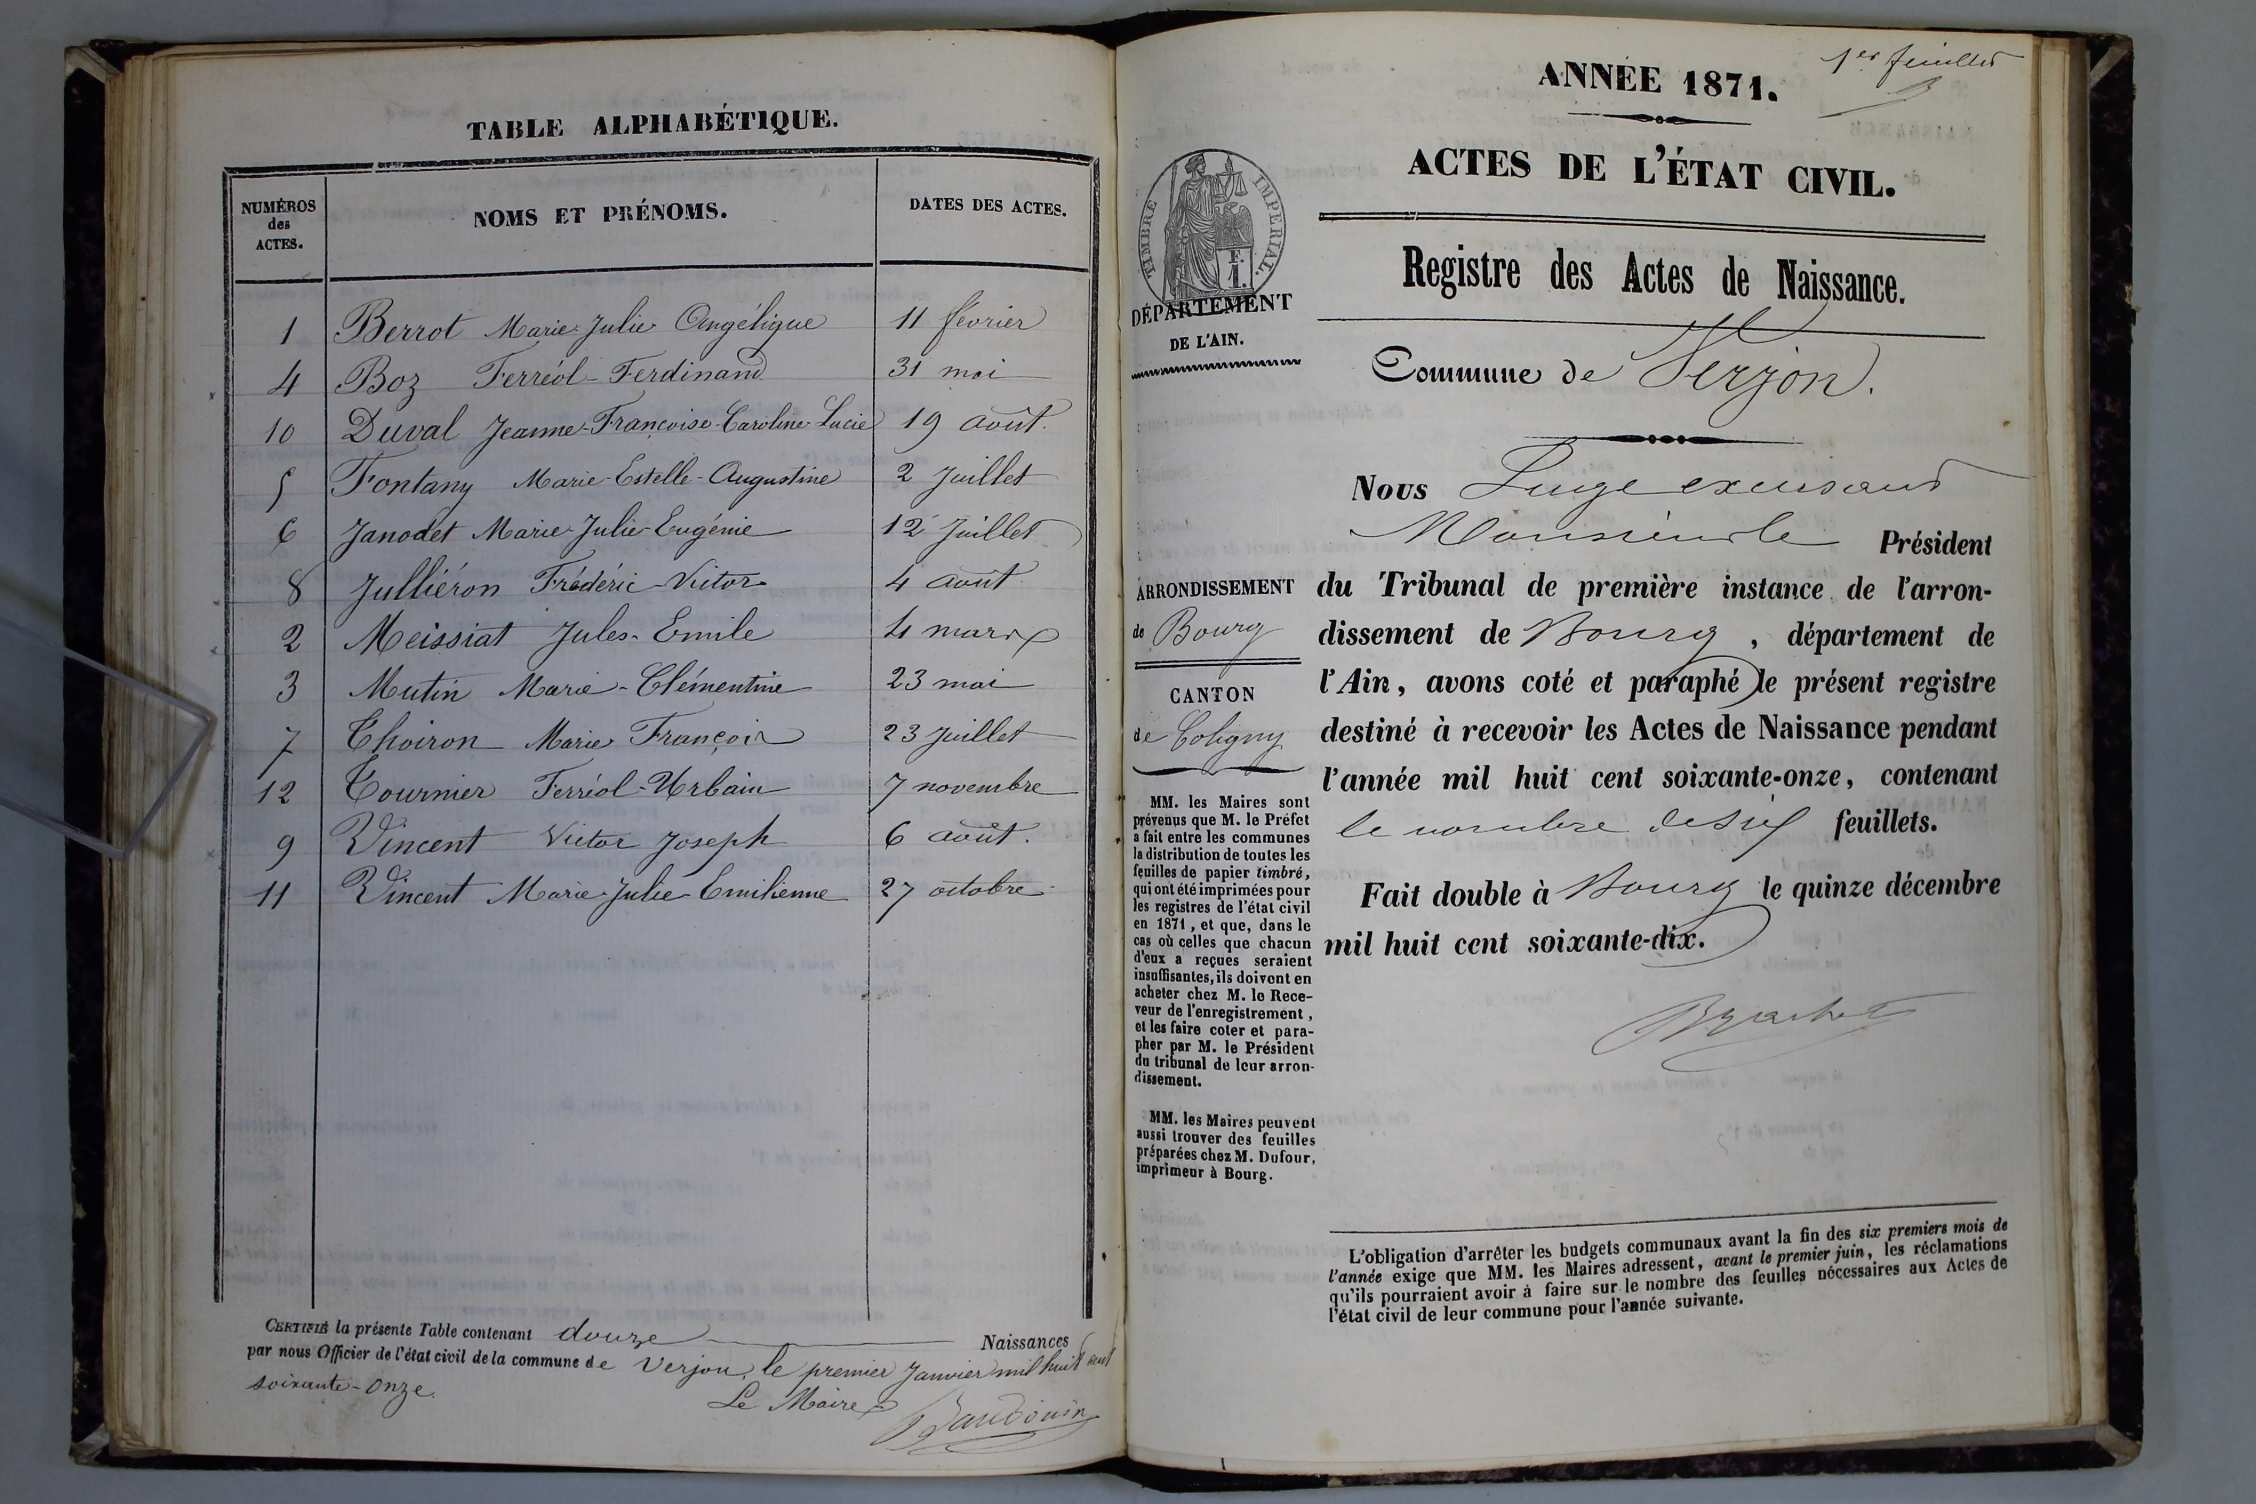 TABLE ALPHABÉTIQUE.
NUMÉROS des ACTES. NOMS ET PRÉNOMS. DATES DES ACTES.
1 Berrot Marie Julie Angélique 11 février
4 Boz Ferréol-Ferdinand 31 mai
10 Duval Jeanne-Françoise-Caroline-Lucie 19 août.
5 Fontany Marie-Estelle-Augustine 2 Juillet
6 Janodet Marie Julie Eugénie 12 Juillet
8 Julliéron Frédéric Victor 4 août
2 Meissiat Jules-Emile 4 mars
3 Mutin Marie-Clémentine 23 mai
7 Thoiron Marie François 23 Juillet
12 Tournier Ferréol-Urbain 7 novembre
9 Vincent Victor Joseph 6 août.
11 Vincent Marie-Julie-Emilienne 27 octobre
CERTIFIÉ la présente Table contenant douze Naissances
par nous Officier de l'état civil de la commune de Verjon, le premier Janvier mil huit cent
soixante-onze.
Le Maire
Baudouin
1er feuillet
ANNÉE 1871.
ACTES DE L'ÉTAT CIVIL.
TIMBRE IMPERIAL.
F.
1.
DÉPARTEMENT
DE L'AIN.
Registre des Actes de Naissance.
Commune de Verjon.
ARRONDISSEMENT
de Bourg
CANTON
de Coligny
MM. les Maires sont
prévenus que M. le Préfet
a fait entre les communes
la distribution de toutes les
feuilles de papier timbré,
qui ont été imprimées pour
les registres de l'état civil
en 1871, et que, dans le
cas où celles que chacun
d'eux a reçues seraient
insuffisantes, ils doivent en
acheter chez M. le Rece-
veur de l'enregistrement,
et les faire coter et para-
pher par M. le Président
du tribunal de leur arron-
dissement.
MM. les Maires peuvent
aussi trouver des feuilles
préparées chez M. Dufour,
imprimeur à Bourg.
Nous Juge
Monsieur le Président
du Tribunal de première instance de l'arron-
dissement de Bourg, département de
l'Ain, avons coté et paraphé le présent registre
destiné à recevoir les Actes de Naissance pendant
l'année mil huit cent soixante-onze, contenant
le nombre de six feuillets.
Fait double à Bourg le quinze décembre
mil huit cent soixante-dix.
L'obligation d'arrêter les budgets communaux avant la fin des six premiers mois de
l'année exige que MM. les Maires adressent, avant le premier juin, les réclamations
qu'ils pourraient avoir à faire sur le nombre des feuilles nécessaires aux Actes de
l'état civil de leur commune pour l'année suivante.